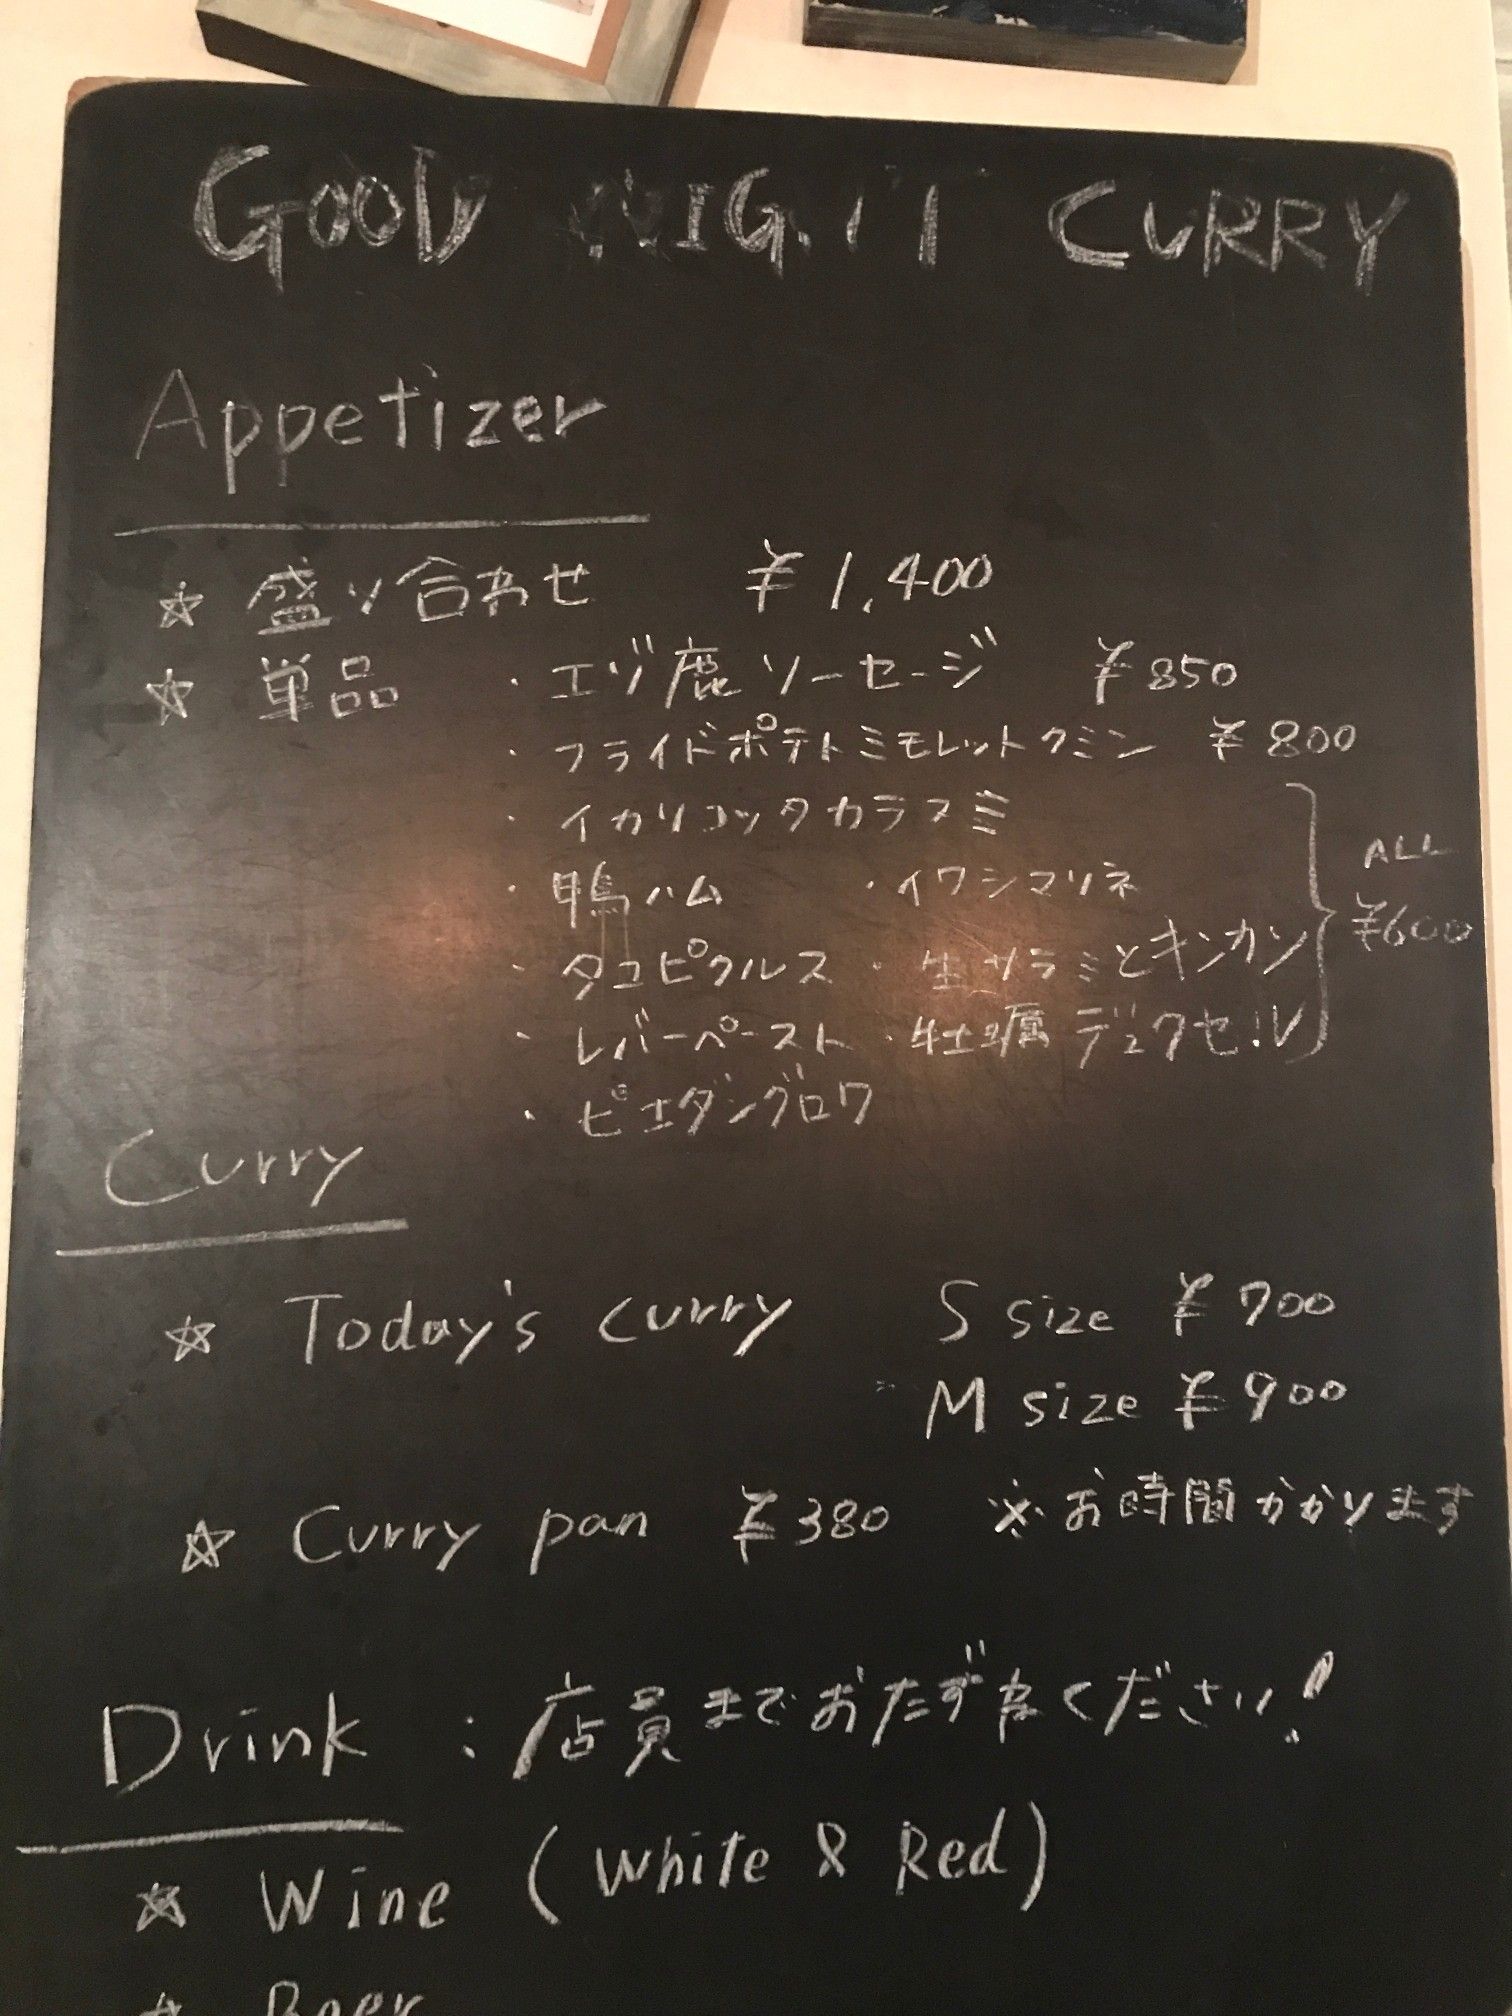 GOOD NIGHT CURRY
Appetizer
☆ 盛り合わせ ¥1,400
☆ 単品 ・エゾ鹿ソーセージ ¥850
・フライドポテトミモレットクミン ¥800
・イカリコッタカラスミ
・鴨ハム ・イワシマリネ
・タコピクルス ・生サラミとキンカン
・レバーペースト ・牡蠣デュクセル
・ピエダングロワ
ALL
¥600
Curry
☆ Today's curry S size ¥700
M size ¥900
☆ Curry pan ¥380 ※お時間かかります
Drink : 店員までおたずねください!
☆ Wine (White & Red)
☆ Beer